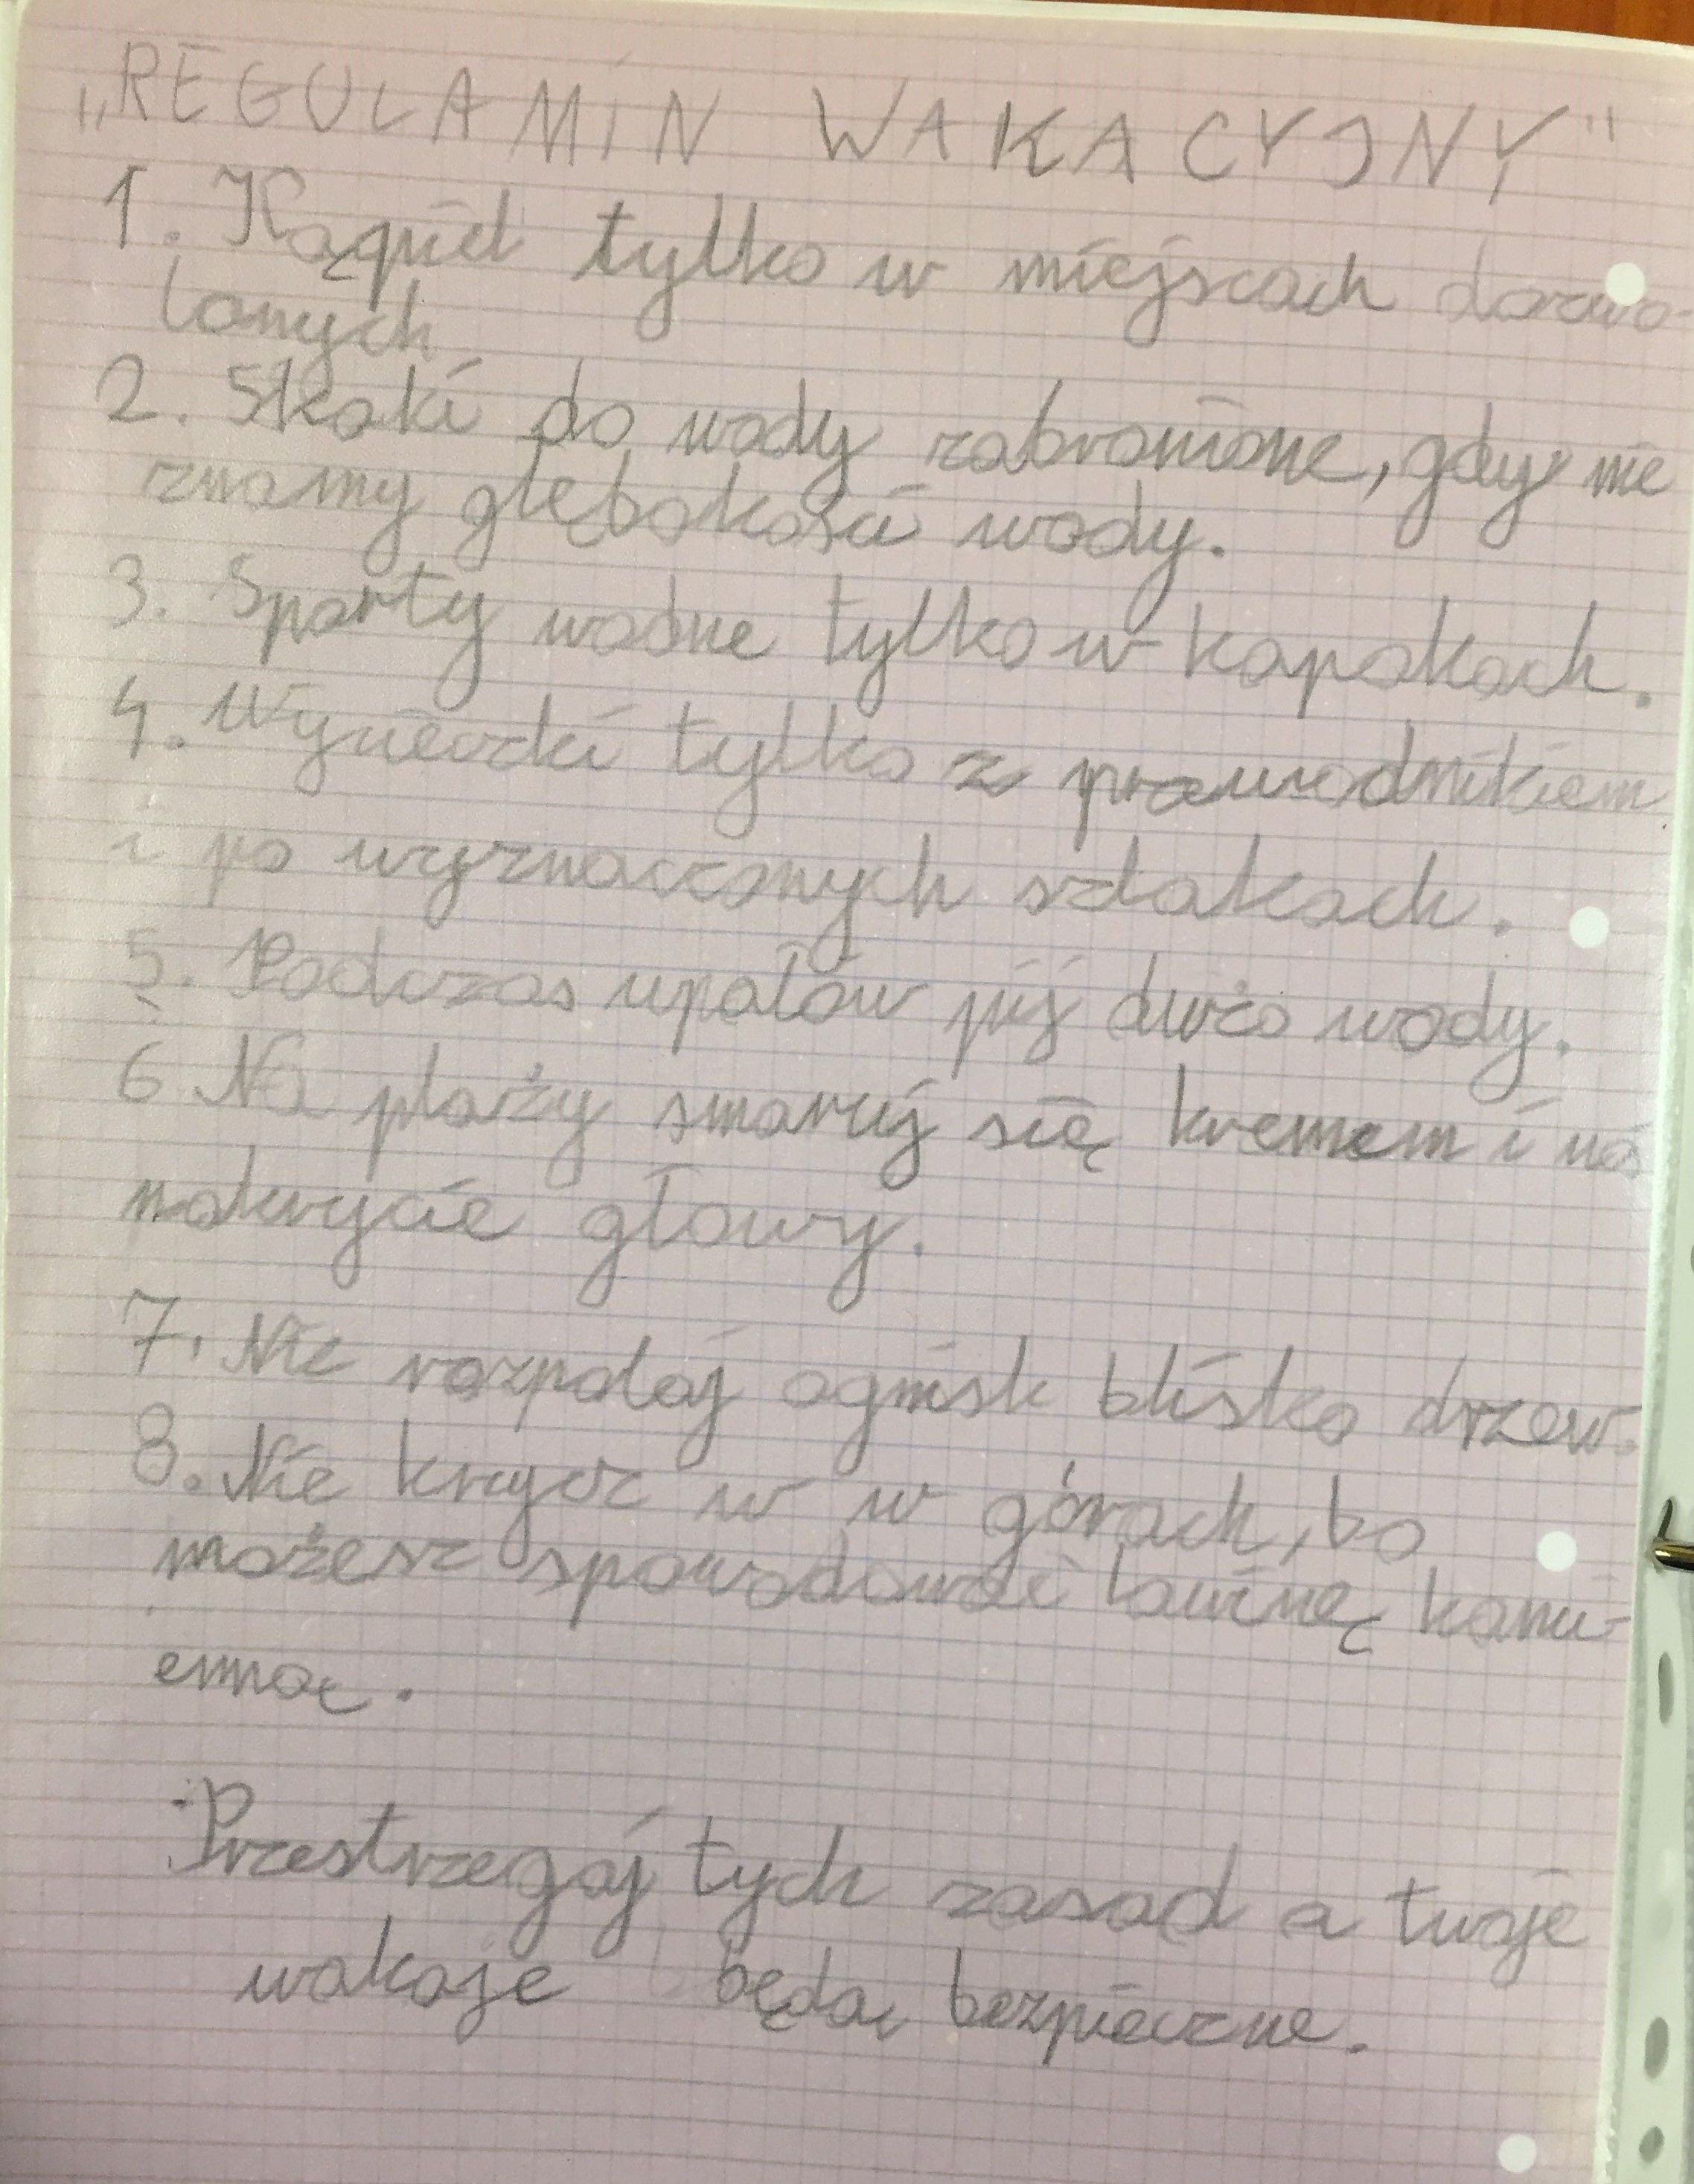 „REGULAMIN WAKACYJNY"
1. Kąpiel tylko w miejscach dozwo-
lonych
2. Skoki do wody zabronione, gdy nie
znamy głębokości wody.
3. Sporty wodne tylko w kapokach.
4. Wycieczki tylko z przewodnikiem
i po wyznaczonych szlakach.
5. Podczas upałów pij dużo wody.
6 Na plaży smaruj się kremem i noś
nakrycie głowy.
7. Nie rozpalaj ognisk blisko drzew.
8. Nie krzycz w w górach, bo
możesz spowodować lawinę kami-
enną.
Przestrzegaj tych zasad a twoje
wakaje będą bezpieczne.